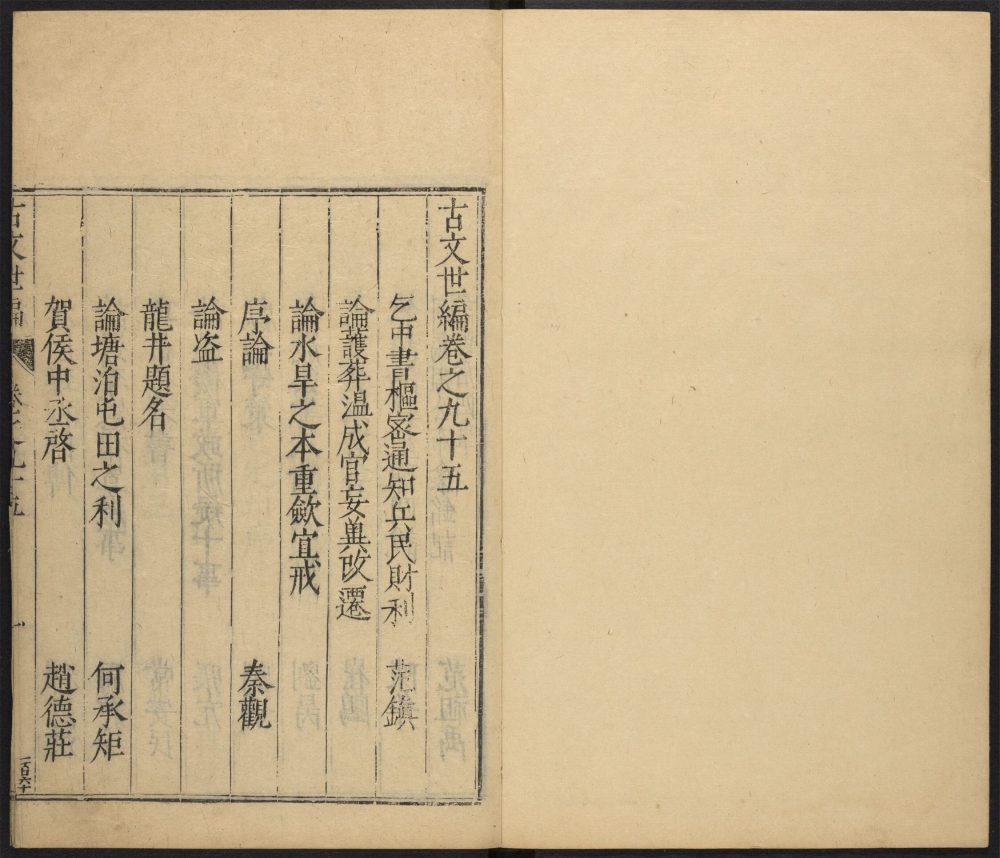 古文世編卷之九十五
乞中書樞密通知兵民財利 范鎮
論護葬温成官妄興改遷
論水旱之本重歛宜戒
序論 秦觀
論盗
龍井題名
論塘泊屯田之利 何承矩
賀侯中丞啓 趙德莊
古文世編 卷之九十五 一